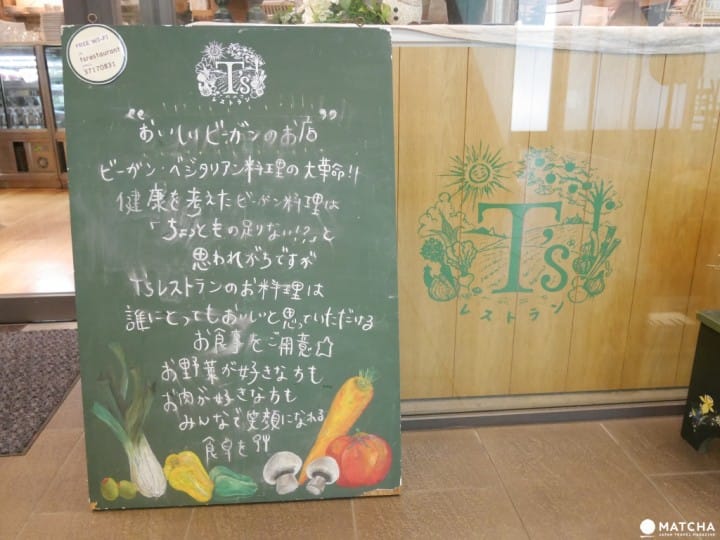 FREE Wi-Fi
tsrestaurant
37170831
T's
レストラン
"おいしいビーガンのお店"
ビーガン・ベジタリアン料理の大革命!!
健康を考えたビーガン料理は
「ちょっともの足りない!?」と
思われがちですが
T'sレストランのお料理は
誰にとってもおいしいと思っていただける
お食事をご用意☆
お野菜が好きな方も
お肉が好きな方も
みんなで笑顔になれる
食卓を!!
T's
レストラン
MATCHA
JAPAN TRAVEL MAGAZINE